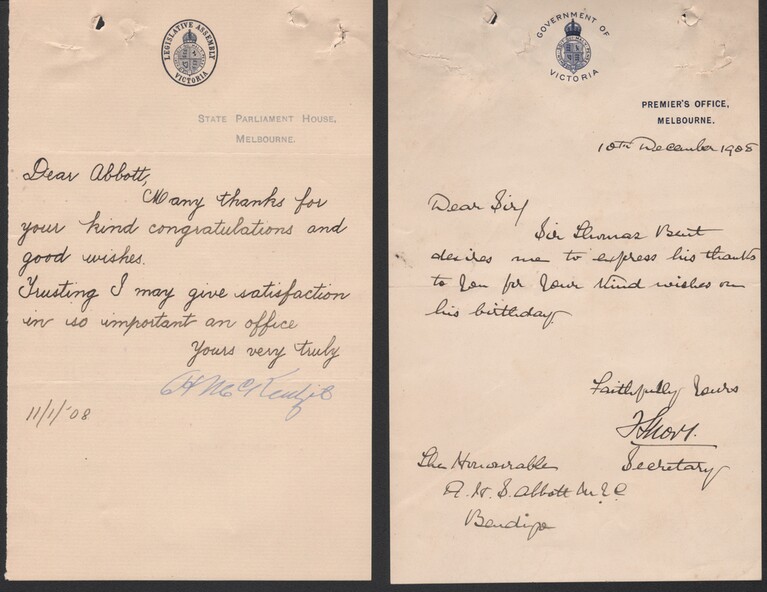 LEGISLATIVE ASSEMBLY
VICTORIA
STATE PARLIAMENT HOUSE,
MELBOURNE.
Dear Abbott,
Many thanks for
your kind congratulations and
good wishes.
Trusting I may give satisfaction
in so important an office
Yours very truly
McKenzie
11/1/'08
GOVERNMENT OF
VICTORIA
PREMIER'S OFFICE,
MELBOURNE.
10th December 1908
Dear Sir/
Sir Thomas Bent
desires me to express his thanks
to you for your kind wishes on
his birthday.
Faithfully Yours
Secretary
The Honourable
R. H. S. Abbott M.L.C
Bendigo